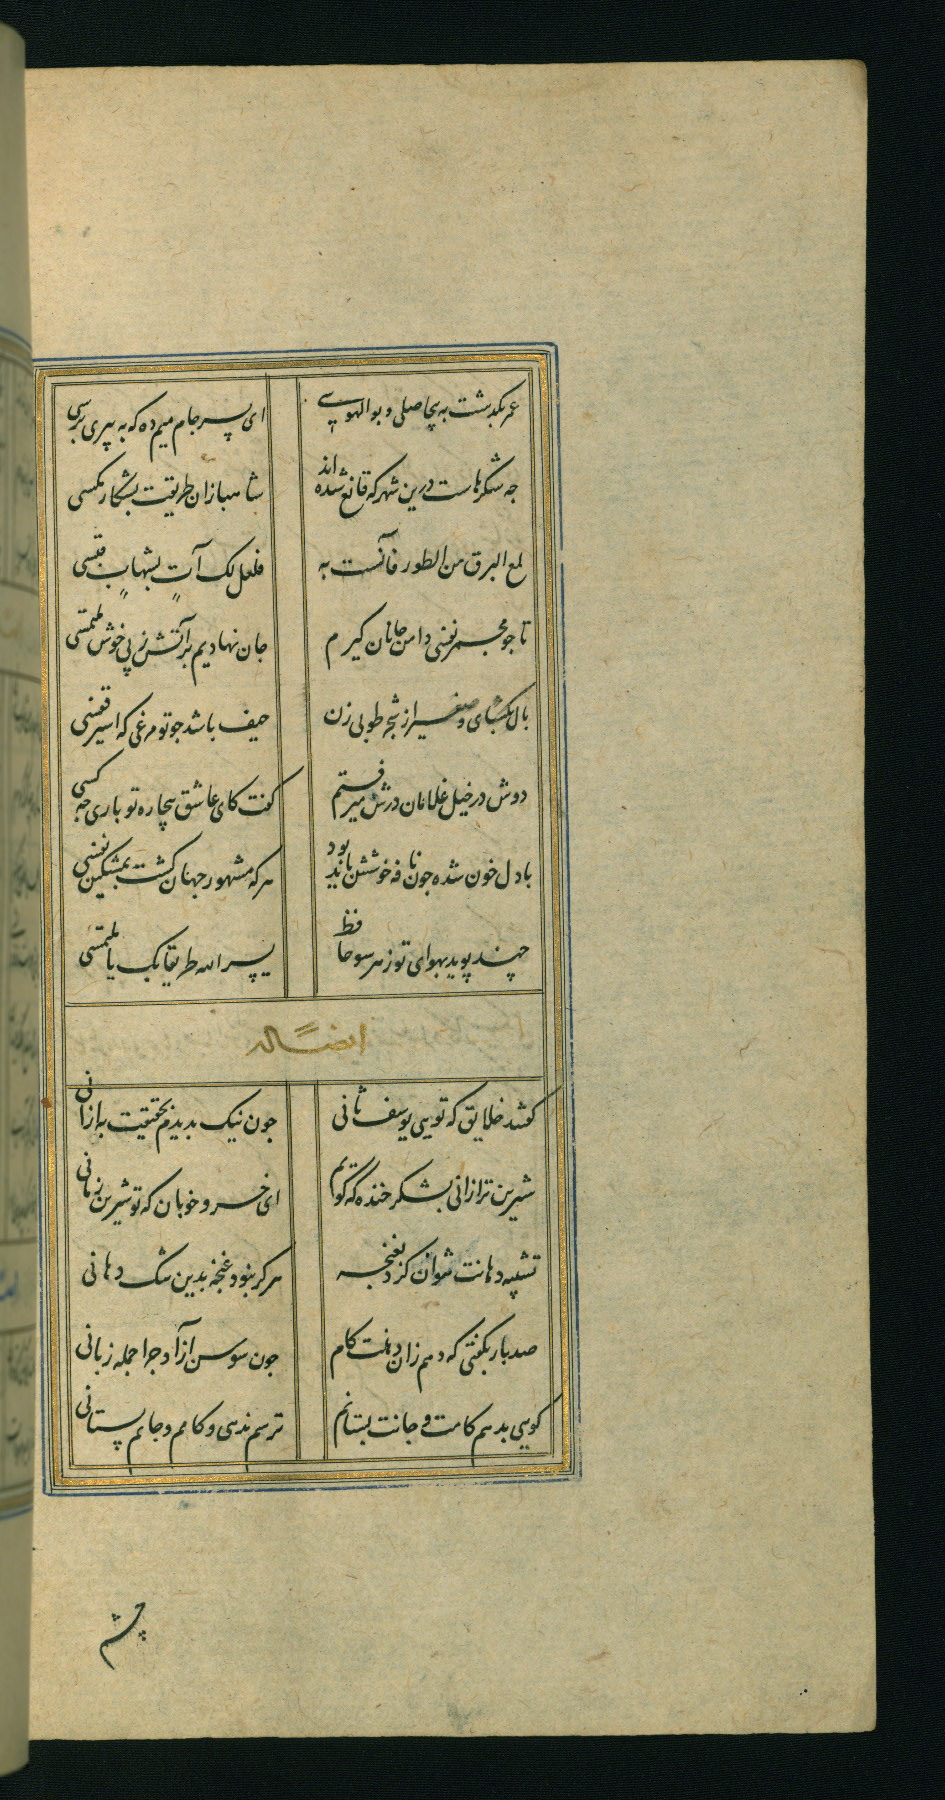 عمر بگذشت به بیحاصلی و بوالهوسی ای پسر جام میم ده که به پیری برسی
چه شکرهاست درین شهر که قانع شده‌اند شاهبازان طریقت بشکار مگسی
لمع البرق من الطور فآنست به فلعل لک آتٍ بشهابٍ قبسی
تا چو مجمر نفسی دامن جانان گیرم جان نهادیم بر آتش ز پی خوش
بال بگشای و صفیر از شجر طوبی زن حیف باشد چو تو مرغی که اسیر قفسی
دوش در خیل غلامان درش میرفتم گفت کای عاشق بیچاره تو باری چه کسی
با دل خون شده چون نافه خوشش باید بود هر که مشهور جهان گشت بمشکین نفسی
چند پوید بهوای تو ز هر سو حافظ یسر الله طریقا بک یا ملتمسی
ایضاً له
گفتند خلایق که تویی یوسف ثانی چون نیک بدیدم بحقیقت به ازانی
شیرین تر ازانی بشکر خنده که گویم ای خسرو خوبان که تو شیرین زمانی
تشبیه دهانت نتوان کرد بغنچه هرگز نبود غنچه بدین تنگ دهانی
صد بار بگفتی که دهم زان دهنت کام چون سوسن آزاد چرا جمله زبانی
گویی بدهم کامت و جانت بستانم ترسم ندهی کامم و جانم بستانی
چشم